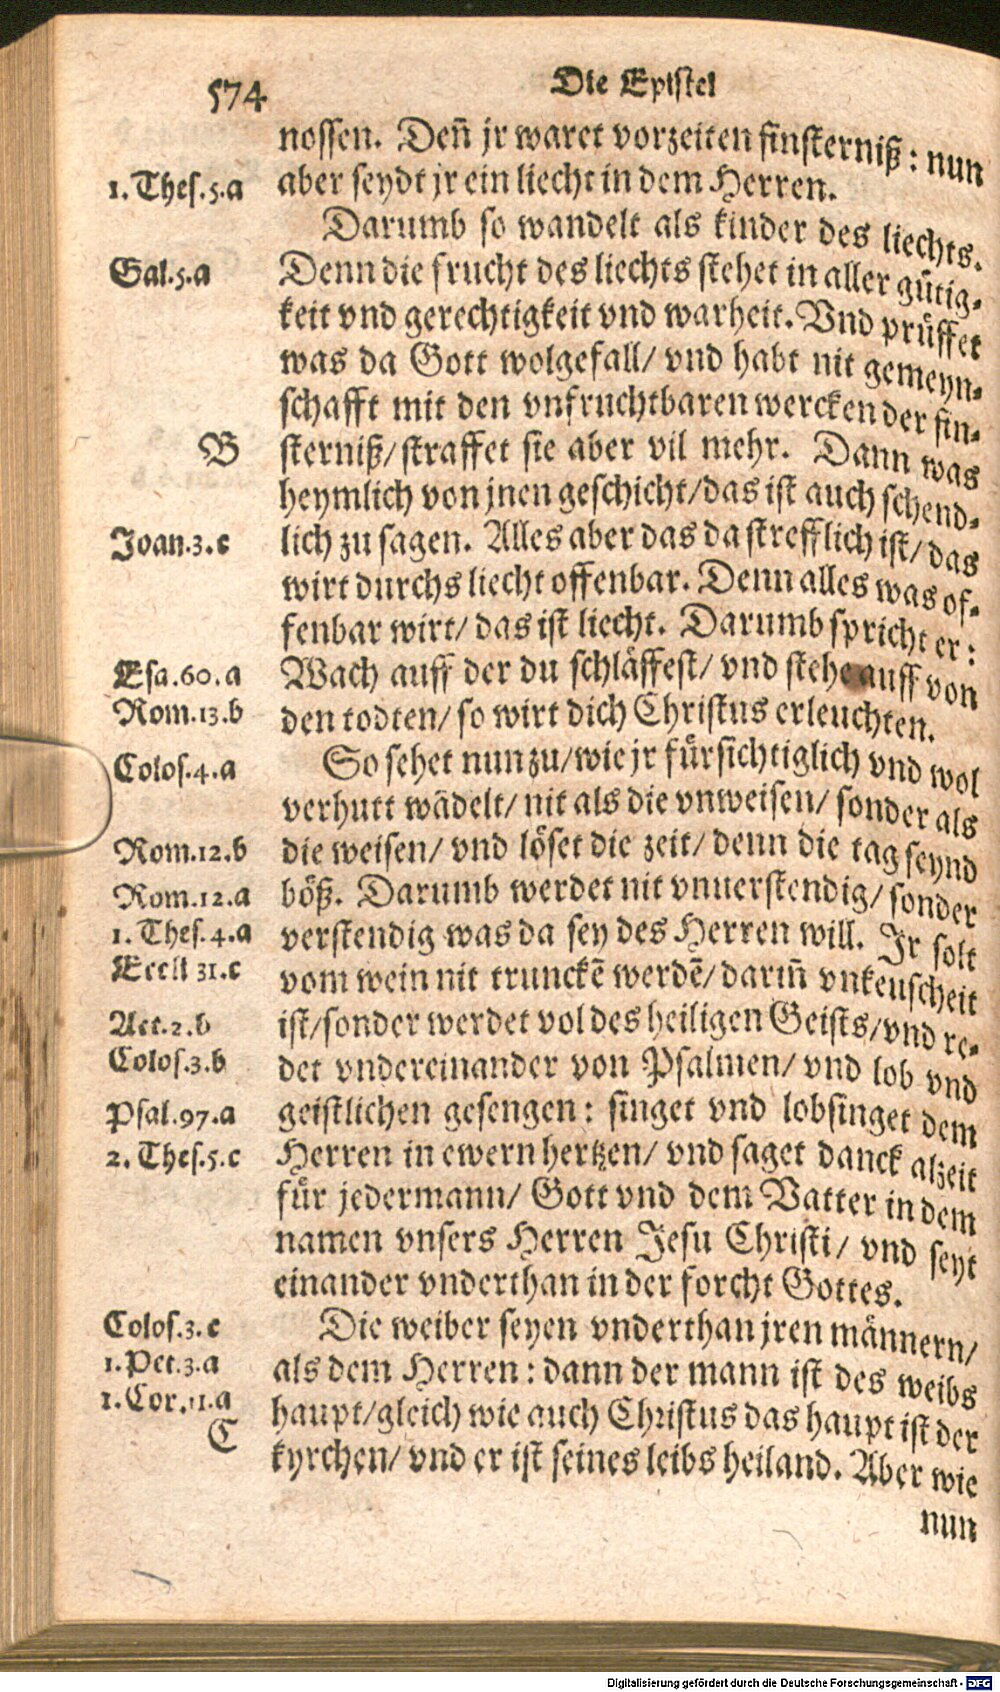 574
Die Epistel
nossen. Deñ jr waret vorzeiten finsterniß: nun
1. Thes. 5. a
aber seydt jr ein liecht in dem Herren.
Darumb so wandelt als kinder des liechts.
Gal. 5. a
Denn die frucht des liechts stehet in aller gütig-
keit vnd gerechtigkeit vnd warheit. Vnd prüffet
was da Gott wolgefall/ vnd habt nit gemeyn-
schafft mit den vnfruchtbaren wercken der fin-
B
sterniß/ straffet sie aber vil mehr. Dann was
heymlich von jnen geschicht/ das ist auch schend-
Joan. 3. c
lich zu sagen. Alles aber das da strefflich ist/ das
wirt durchs liecht offenbar. Denn alles was of-
fenbar wirt/ das ist liecht. Darumb spricht er:
Esa. 60. a
Wach auff der du schläffest/ vnd stehe auff von
Rom. 13. b
den todten/ so wirt dich Christus erleuchten.
Colos. 4. a
So sehet nun zu/ wie jr fürsichtiglich vnd wol
verhutt wãdelt/ nit als die vnweisen/ sonder als
Rom. 12. b
die weisen/ vnd löset die zeit/ denn die tag seynd
Rom. 12. a
böß. Darumb werdet nit vnuerstendig/ sonder
1. Thes. 4. a
verstendig was da sey des Herren will. Jr solt
Eccli 31. c
vom wein nit trunckẽ werdẽ/ dariñ vnkeuscheit
Act. 2. b
ist/ sonder werdet vol des heiligen Geists/ vnd re-
Colos. 3. b
det vndereinander von Psalmen/ vnd lob vnd
Psal. 97. a
geistlichen gesengen: singet vnd lobsinget dem
2. Thes. 5. c
Herren in ewern hertzen/ vnd saget danck alzeit
für jedermann/ Gott vnd dem Vatter in dem
namen vnsers Herren Jesu Christi/ vnd seyt
einander vnderthan in der forcht Gottes.
Colos. 3. c
Die weiber seyen vnderthan jren männern/
1. Pet. 3. a
als dem Herren: dann der mann ist des weibs
1. Cor. 11. a
haupt/ gleich wie auch Christus das haupt ist der
C
kyrchen/ vnd er ist seines leibs heiland. Aber wie
nun
Digitalisierung gefördert durch die Deutsche Forschungsgemeinschaft - DFG